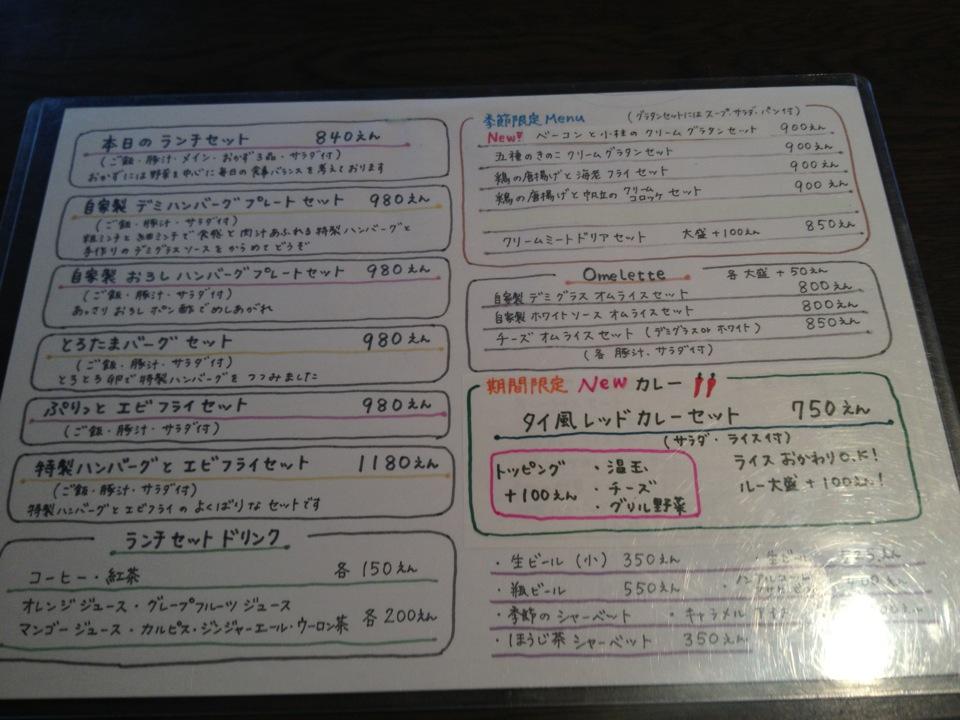 本日の ランチセット 840えん
(ご飯・豚汁・メイン・おかず3品・サラダ付)
おかずには野菜を中心に毎日の食事バランスを考えております
自家製 デミハンバーグプレートセット 980えん
(ご飯・豚汁・サラダ付)
粗ミンチと細ミンチで食感と肉汁あふれる特製ハンバーグと
手作りのデミグラスソースをからめてどうぞ
自家製 おろしハンバーグプレートセット 980えん
(ご飯・豚汁・サラダ付)
あっさりおろしポン酢でめしあがれ
とろたまバーグセット 980えん
(ご飯・豚汁・サラダ付)
とろとろ卵で特製ハンバーグをつつみました
ぷりっと エビフライセット 980えん
(ご飯・豚汁・サラダ付)
特製ハンバーグと エビフライセット 1180えん
(ご飯・豚汁・サラダ付)
特製ハンバーグとエビフライのよくばりなセットです
ランチセットドリンク
コーヒー・紅茶 各150えん
オレンジジュース・グレープフルーツジュース
マンゴージュース・カルピス・ジンジャーエール・ウーロン茶 各200えん
季節限定Menu (グラタンセットにはスープ.サラダ.パン付)
New! ベーコンと小柱のクリームグラタンセット 900えん
五種のきのこクリームグラタンセット 900えん
鶏の唐揚げと海老フライセット 900えん
鶏の唐揚げと帆立のクリームコロッケセット 900えん
クリームミートドリアセット 大盛+100えん 850えん
Omelette 各大盛+50えん
自家製デミグラスオムライスセット 800えん
自家製ホワイトソースオムライスセット 800えん
チーズオムライスセット (デミグラスorホワイト) 850えん
(各 豚汁.サラダ付)
期間限定 New カレー
タイ風レッドカレーセット 750えん
(サラダ・ライス付)
トッピング +100えん
・温玉
・チーズ
・グリル野菜
ライスおかわりO.K!
ルー大盛+100えん!
・生ビール(小) 350えん ・生ビール
・瓶ビール 550えん
・季節のシャーベット ・キャラメルアイス
・ほうじ茶シャーベット 350えん